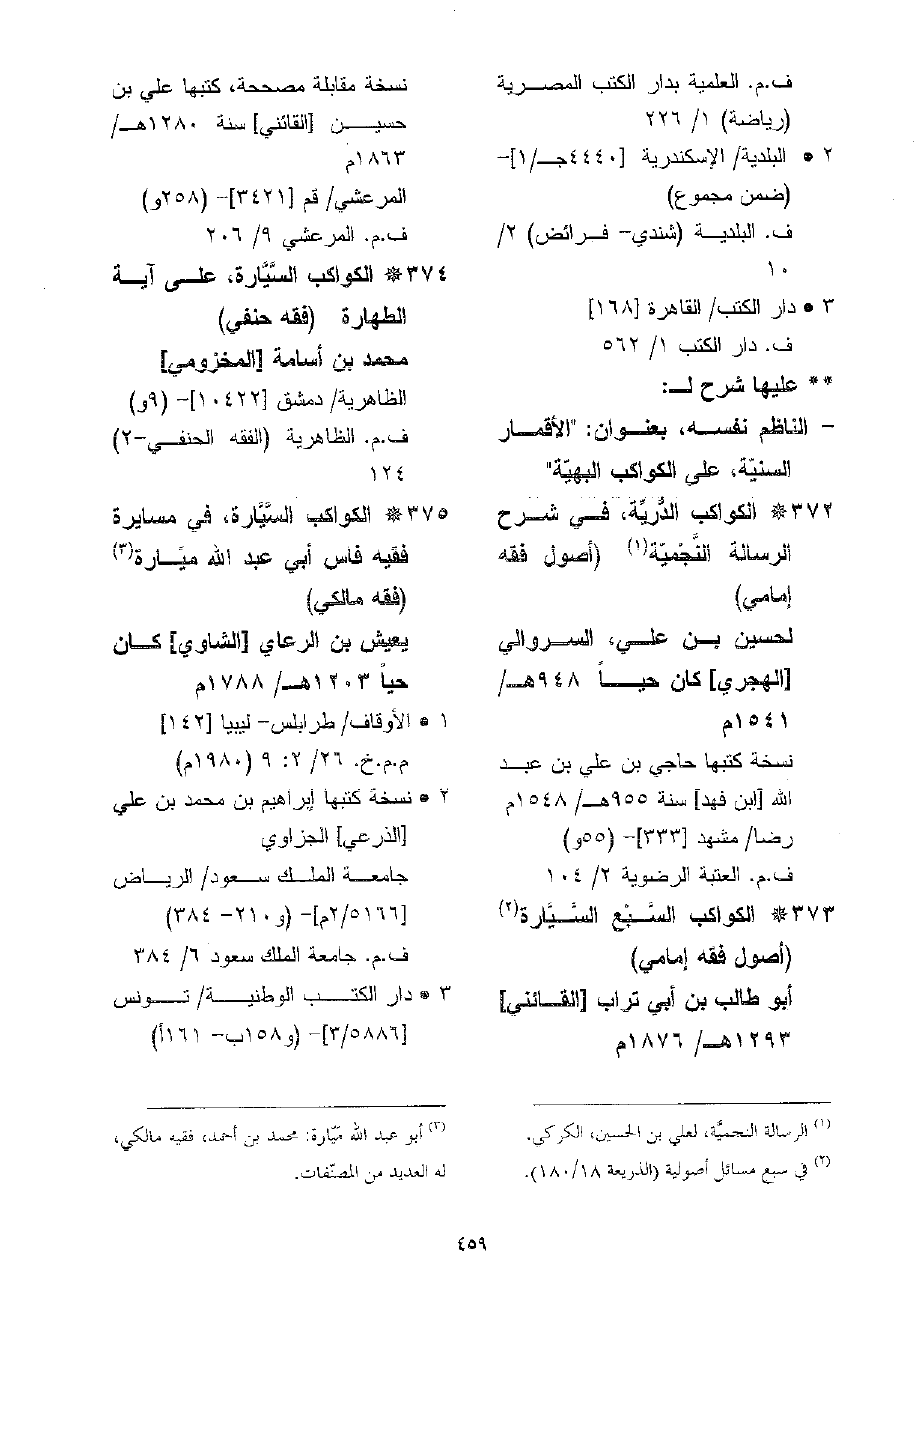 ف.م. العلمية بدار الكتب المصرية
(رياضة) ١/ ٢٢٦
٢ • البلدية/ الإسكندرية [٤٤٤٠جـ/١]-
(ضمن مجموع)
ف. البلدية (شندي- فرائض) ٢/
١٠
٣ • دار الكتب/ القاهرة [١٦٨]
ف. دار الكتب ١/ ٥٦٢
** عليها شرح لـ:
- الناظم نفسه، بعنوان: "الأقمار
السنيّة، على الكواكب البهيّة"
٣٧٢* الكواكب الدُّريَّة، في شرح
الرسالة النَّجْميّة(١) (أصول فقه
إمامي)
لحسين بن علي، السروالي
[الهجري] كان حياً ٩٤٨هـ/
١٥٤١م
نسخة كتبها حاجي بن علي بن عبد
الله [ابن فهد] سنة ٩٥٥هـ/ ١٥٤٨م
رضا/ مشهد [٣٣٣]- (٥٥و)
ف.م. العتبة الرضوية ٢/ ١٠٤
٣٧٣* الكواكب السَّبْع السَّيَّارة(٢)
(أصول فقه إمامي)
أبو طالب بن أبي تراب [القائني]
١٢٩٣هـ/ ١٨٧٦م
(١) الرسالة النجميَّة، لعلي بن الحسين، الكركي.
(٢) في سبع مسائل أصولية (الذريعة ١٨/ ١٨٠).
نسخة مقابلة مصححة، كتبها علي بن
حسين [القائني] سنة ١٢٨٠هـ/
١٨٦٣م
المرعشي/ قم [٣٤٢١]- (٢٥٨و)
ف.م. المرعشي ٩/ ٢٠٦
٣٧٤* الكواكب السَّيَّارة، على آية
الطهارة (فقه حنفي)
محمد بن أسامة [المخزومي]
الظاهرية/ دمشق [١٠٤٢٢]- (٩و)
ف.م. الظاهرية (الفقه الحنفي-٢)
١٢٤
٣٧٥* الكواكب السَّيَّارة، في مسايرة
فقيه فاس أبي عبد الله ميَّارة(٣)
(فقه مالكي)
يعيش بن الرعاي [الشاوي] كان
حياً ١٢٠٣هـ/ ١٧٨٨م
١ • الأوقاف/ طرابلس- ليبيا [١٤٢]
م.م.خ. ٢٦/ ٢: ٩ (١٩٨٠م)
٢ • نسخة كتبها إبراهيم بن محمد بن علي
[الذرعي] الجزاوي
جامعة الملك سعود/ الرياض
[٢/٥١٦٦م]- (و٢١٠- ٣٨٤)
ف.م. جامعة الملك سعود ٦/ ٣٨٤
٣ • دار الكتب الوطنية/ تونس
[٣/٥٨٨٦]- (و١٥٨ب- ١٦١أ)
(٣) أبو عبد الله ميّارة: محمد بن أحمد، فقيه مالكي،
له العديد من المصنّفات.
٤٥٩